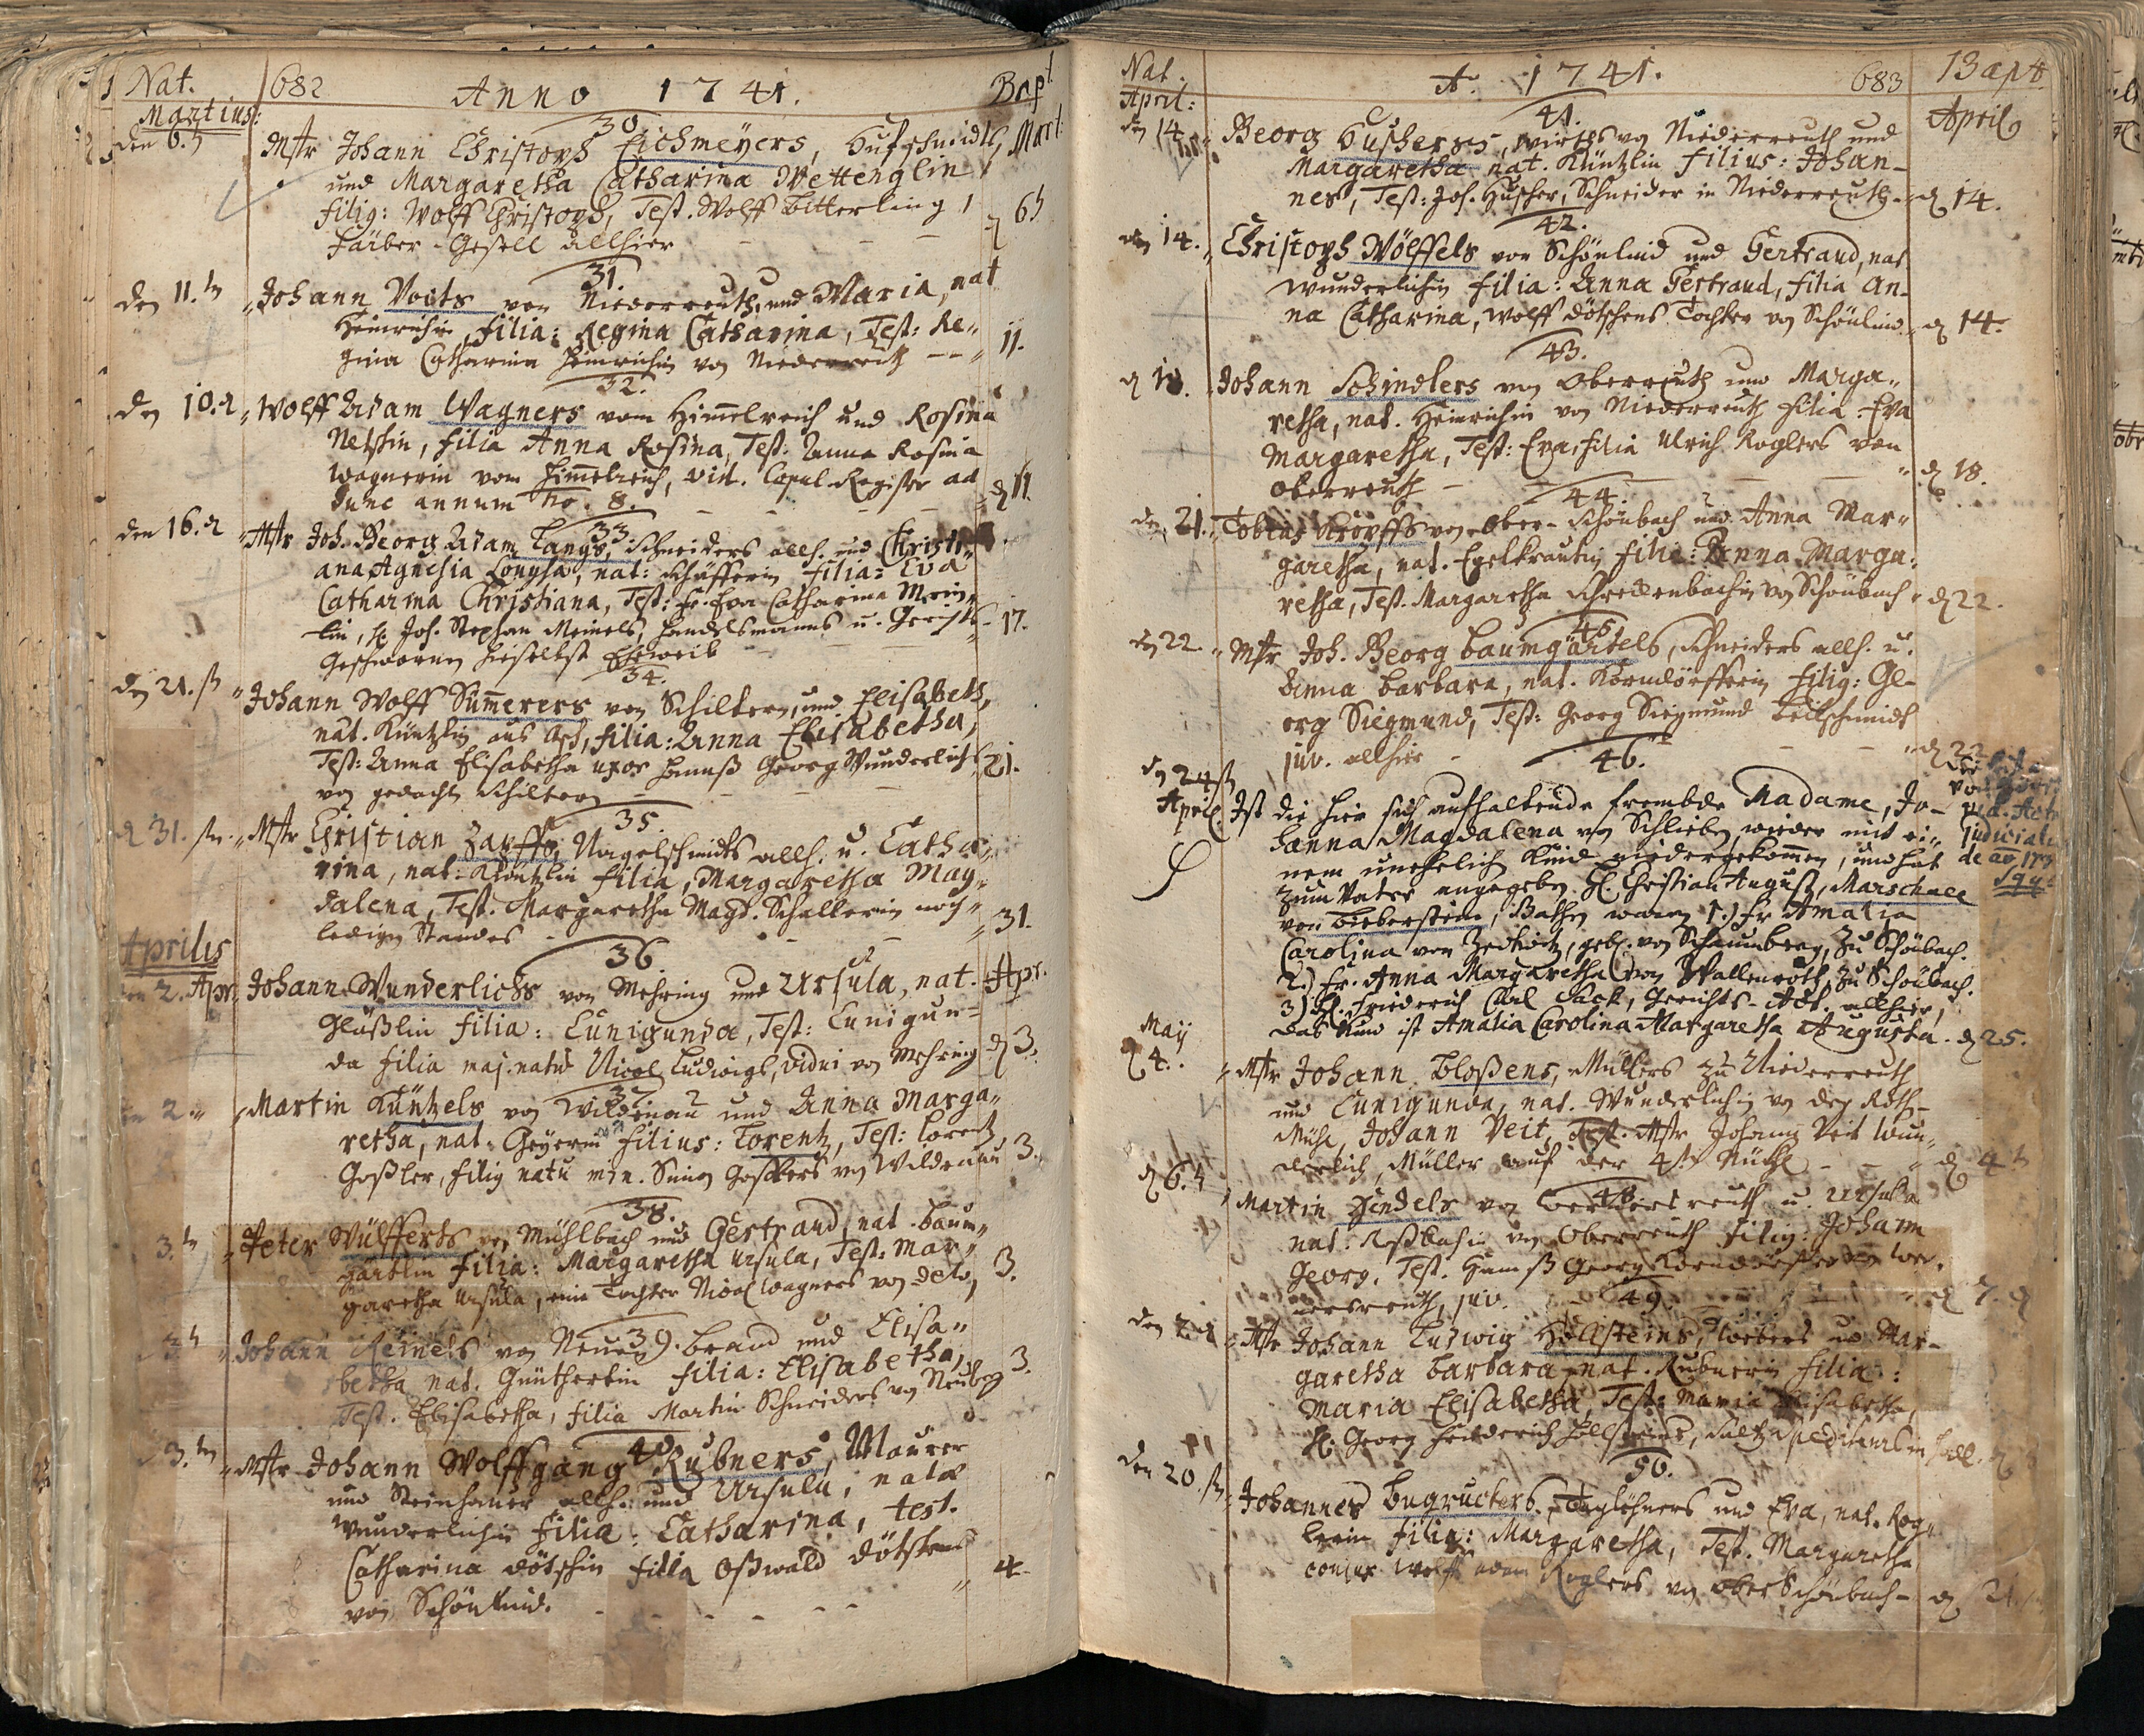 Nat. 682 Anno 1741. Bapt
Martius:
30
den 6. Mstr Johann Christoph Eichmeyers, Hufschmidts, Mart:
und Margaretha Catharina Wettenglin
filig: Wolff Christoph, Test. Wolff Bitterling,
Färber-Gesell allhier - - - 6
31.
den 11. Johann Voits von Niederreuth, und Maria, nat
Heinrichin, filia: Regina Catharina, Test: Re-
gina Catharina Heinrichin von Niederreuth -- 11.
32.
den 10. Wolff Adam Wagners vom Himelreich und Rosina
filia Anna Rosina, Test. Anna Rosina
Wagnerin vom Himelreich, vid. Copul-Register ad
hunc annum No. 8. - - - 11
33.
den 16. Mstr Joh. Georg Adam Langs, Schneiders allh. und Christi-
ana Agnesia nat: Schäfferin filia: Eva
Catharina Christiana, Test: Fr. Eva Catharina
Joh. Stephan Meinels, Handelsmanns u. Gerichts- 17.
Geschwornen hieselbst Eheweib - - -
34.
den 21. Johann Wolff Sümerers von Schiltern, und Elisabeth,
nat. Küntzlin aus Asch, filia: Anna Elisabetha,
Test: Anna Elisabetha uxor Hannß Georg Wunderlichs 21.
von gedacht Schiltern - - -
35.
31. Mstr Christian Zapffs, Nagelschmidts allh. u. Catha-
rina, nat: Küntzlin filia, Margaretha Mag-
dalena, Test. Margaretha Magd. Schallerin noch
ledigen Standes - - - 31.
Aprilis
36
2. Apr. Johann Wunderlichs von Mehring und Ursula, nat. Apr.
Gläßlin filia: Cunigunda, Test: Cunigun-
da filia maj. natu Nicol Ludwigs, vidui von Mehring 3.
37.
2. Martin Küntzels von Wildenau und Anna Marga-
retha, nat. Geyerin filius: Lorentz, Test: Lorentz
Goßler, filig natu min. Goßlers von Wildenau 3.
38.
3. Peter Wülfferts von Mühlbach und Gertraud nat. Baum-
gärtlin filia: Margaretha Ursula, Test: Mar-
garetha Ursula, eine Tochter Nicol Wagners von deto, 3.
39.
3. Johann Reinels von Neuenbrand und Elisa-
betha nat. Güntherlin filia: Elisabetha,
Test. Elisabetha, filia Martin Schneiders von Neuberg 3.
40.
3. Mstr Johann Wolffgang Rubners, Maurer
und Steinhauer allh. und Ursula, nata
Wunderlichin filia: Catharina, test.
Catharina Dötschin filia Oßwald Dötschens
von Schönlind. - - - 4.
Nat. A. 1741. 683 Bapt.
April: April
41.
den 14. Georg Huschers, Wirths von Niederreuth und
Margaretha nat. Küntzlin filius: Johan-
nes, Test: Joh. Huscher, Schneider in Niederreuth - 14.
42.
den 14. Christoph Wölffels von Schönlind und Gertraud, nat
Wunderlichin filia: Anna Gertraud, filia An-
na Catharina, Wolff Dötschens Tochter von Schönlind 14.
43.
18. Johann Schindlers von Oberreuth und Marga-
retha, nat. Heinrichin von Niederreuth filia Eva
Margaretha, Test: Eva, filia Ulrich Roglers von
Oberreuth - - - 18.
44.
den 21. Tobias Kropffs von Ober-Schönbach und Anna Mar-
garetha, nat. Egelkrautin filia: Anna Marga-
retha, Test. Margaretha Schreckenbachin von Schönbach 22.
45.
den 22. Mstr Joh. Georg Baumgärtels, Schneiders allh. u.
Anna Barbara, nat. Korndörfferin filig: Ge-
org Siegmund, Test: Georg Siegmund Beilschmidt
juv. allhier - - - 22
46.
den 24
April. Ist die hier sich aufhaltende frembde Madame, Jo-
hanna Magdalena von Schlieben wieder mit ei-
nem unehelich Kind niedergekommen, und hat
zum Vater angegeben H. Christian August Marschall
von Bieberstein, Pathen waren 1.) Fr. Amalia
Carolina von Zedtwitz, geb. von Schaumberg, zu Schönbach.
2.) Fr. Anna Margaretha von Wallenroth, zu Schönbach.
3) H. Friederich Carl Sack, Gerichts-Act. allhier,
das Kind ist Amalia Carolina Margaretha Augusta. 25.
Acta
judicialia
de ao
May
4. Mstr Johann Bloßens, Müllers zu Niederreuth
und Cunigunda, nat. Wunderlichin von der Roth-
Mühl, Johann Veit, Test. Mstr Johann Veit Wun-
derlich, Müller auf der Mühl - - 4
48.
6. Martin Hendels von Wernersreuth u. Ursula
nat. Roßbachin von Oberreuth filig: Johann
Georg, Test. Hannß Georg Korndörffer von Wer-
nersreuth, juv. - - 7.
49.
den Mstr Johann Ludwig Höllsteins, Webers u. Mar-
garetha Barbara, nat. Rubnerin filia:
Maria Elisabetha, Test: Maria Elisabetha,
H. Georg Friederich Höllsteins,
50.
den 20. Johannes Bugruckers, Taglöhners und Eva, nat. Rog-
lerin filia: Margaretha, Test. Margaretha
conjux Wolff Adam Roglers von Ober Schönbach - 21.